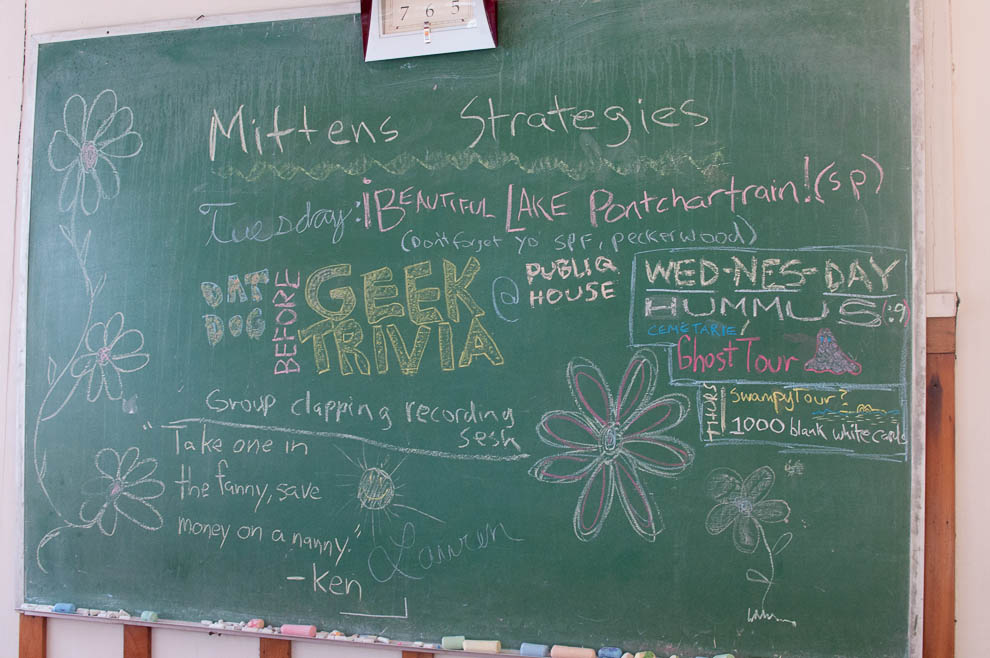 7 6 5
Mittens Strategies
Tuesday: ¡BEAUTIFUL LAKE Pontchartrain! (sp)
(Don't forget yo' SPF, peckerwood)
DAT DOG
BEFORE
GEEK TRIVIA
@ PUBLIQ HOUSE
WED-NES-DAY
HUMMUS (:9)
CEMETARIE/
Ghost Tour
THURS
SwampyTour?
1000 blank white cards
Group clapping recording
sesh
"Take one in
the fanny, save
money on a nanny."
-Ken
Lauren